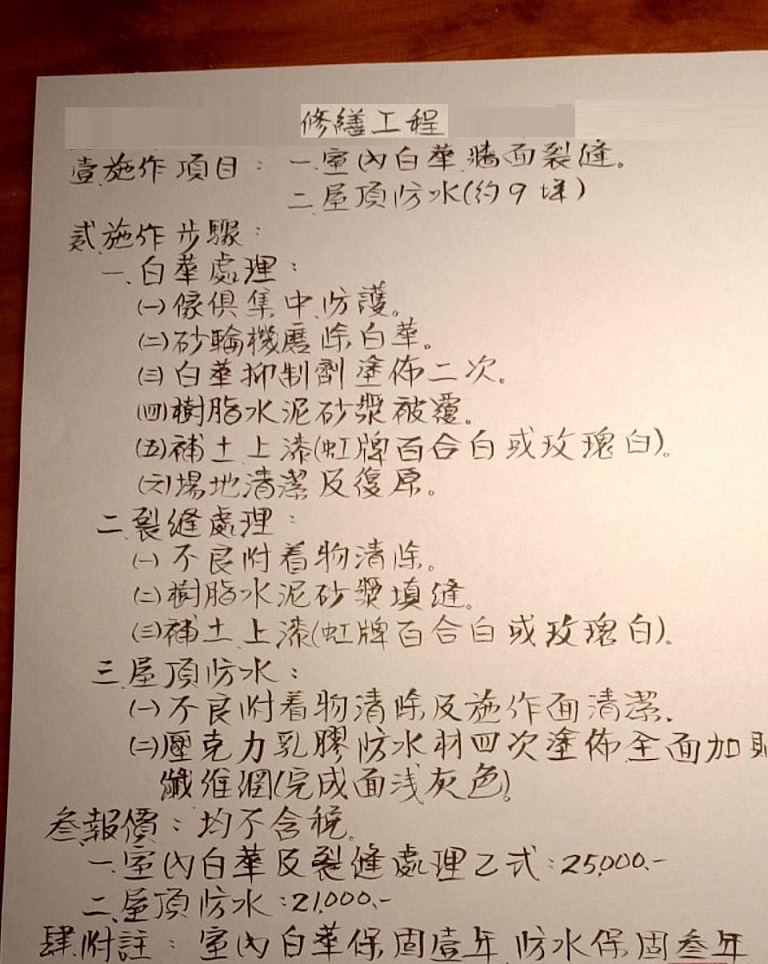 修繕工程
壹施作項目：一.室內白華牆面裂縫。
二.屋頂防水(約9坪)
貳施作步驟：
一.白華處理：
㈠傢俱集中防護。
㈡砂輪機磨除白華。
㈢白華抑制劑塗佈二次。
㈣樹脂水泥砂漿被覆。
㈤補土上漆(虹牌百合白或玫瑰白)。
㈥場地清潔及復原。
二.裂縫處理：
㈠不良附着物清除。
㈡樹脂水泥砂漿填縫。
㈢補土上漆(虹牌百合白或玫瑰白)。
三.屋頂防水：
㈠不良附着物清除及施作面清潔.
㈡壓克力乳膠防水材四次塗佈全面加貼
纖維網(完成面浅灰色)
叁報價：均不含稅.
一.室內白華及裂縫處理乙式:25,000.-
二.屋頂防水:21,000.-
肆.附註：室內白華保固壹年 防水保固叁年